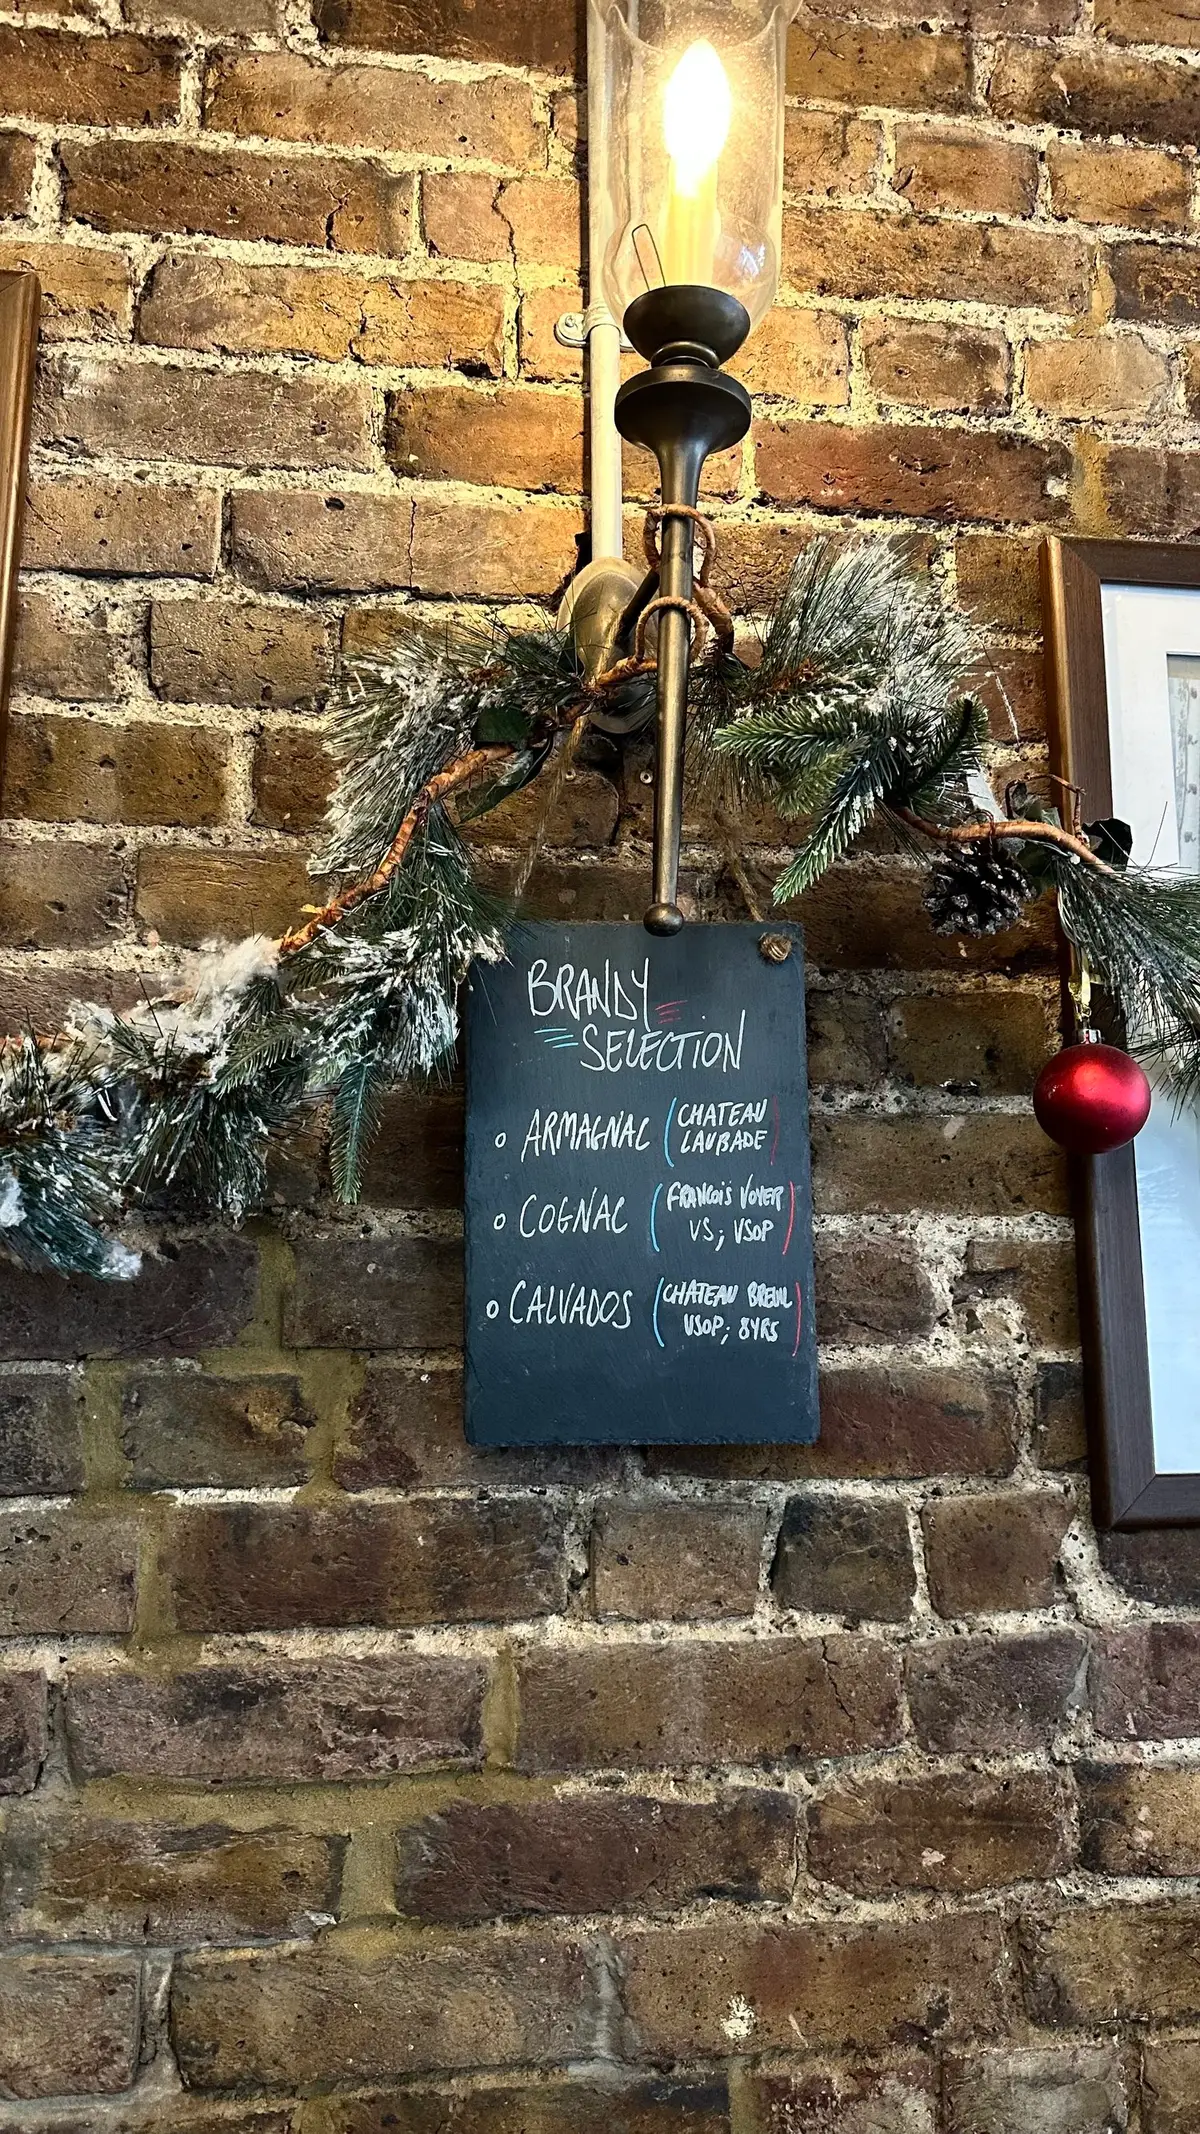 BRANDY
SELECTION
o ARMAGNAC (CHATEAU
LAUBADE)
o COGNAC (FRANCOIS VOYER
VS; VSOP)
o CALVADOS (CHATEAU BREUIL
VSOP; 8YRS)